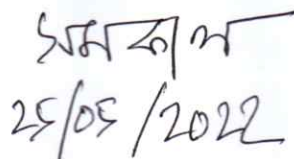 সমকাল
25/05/2022